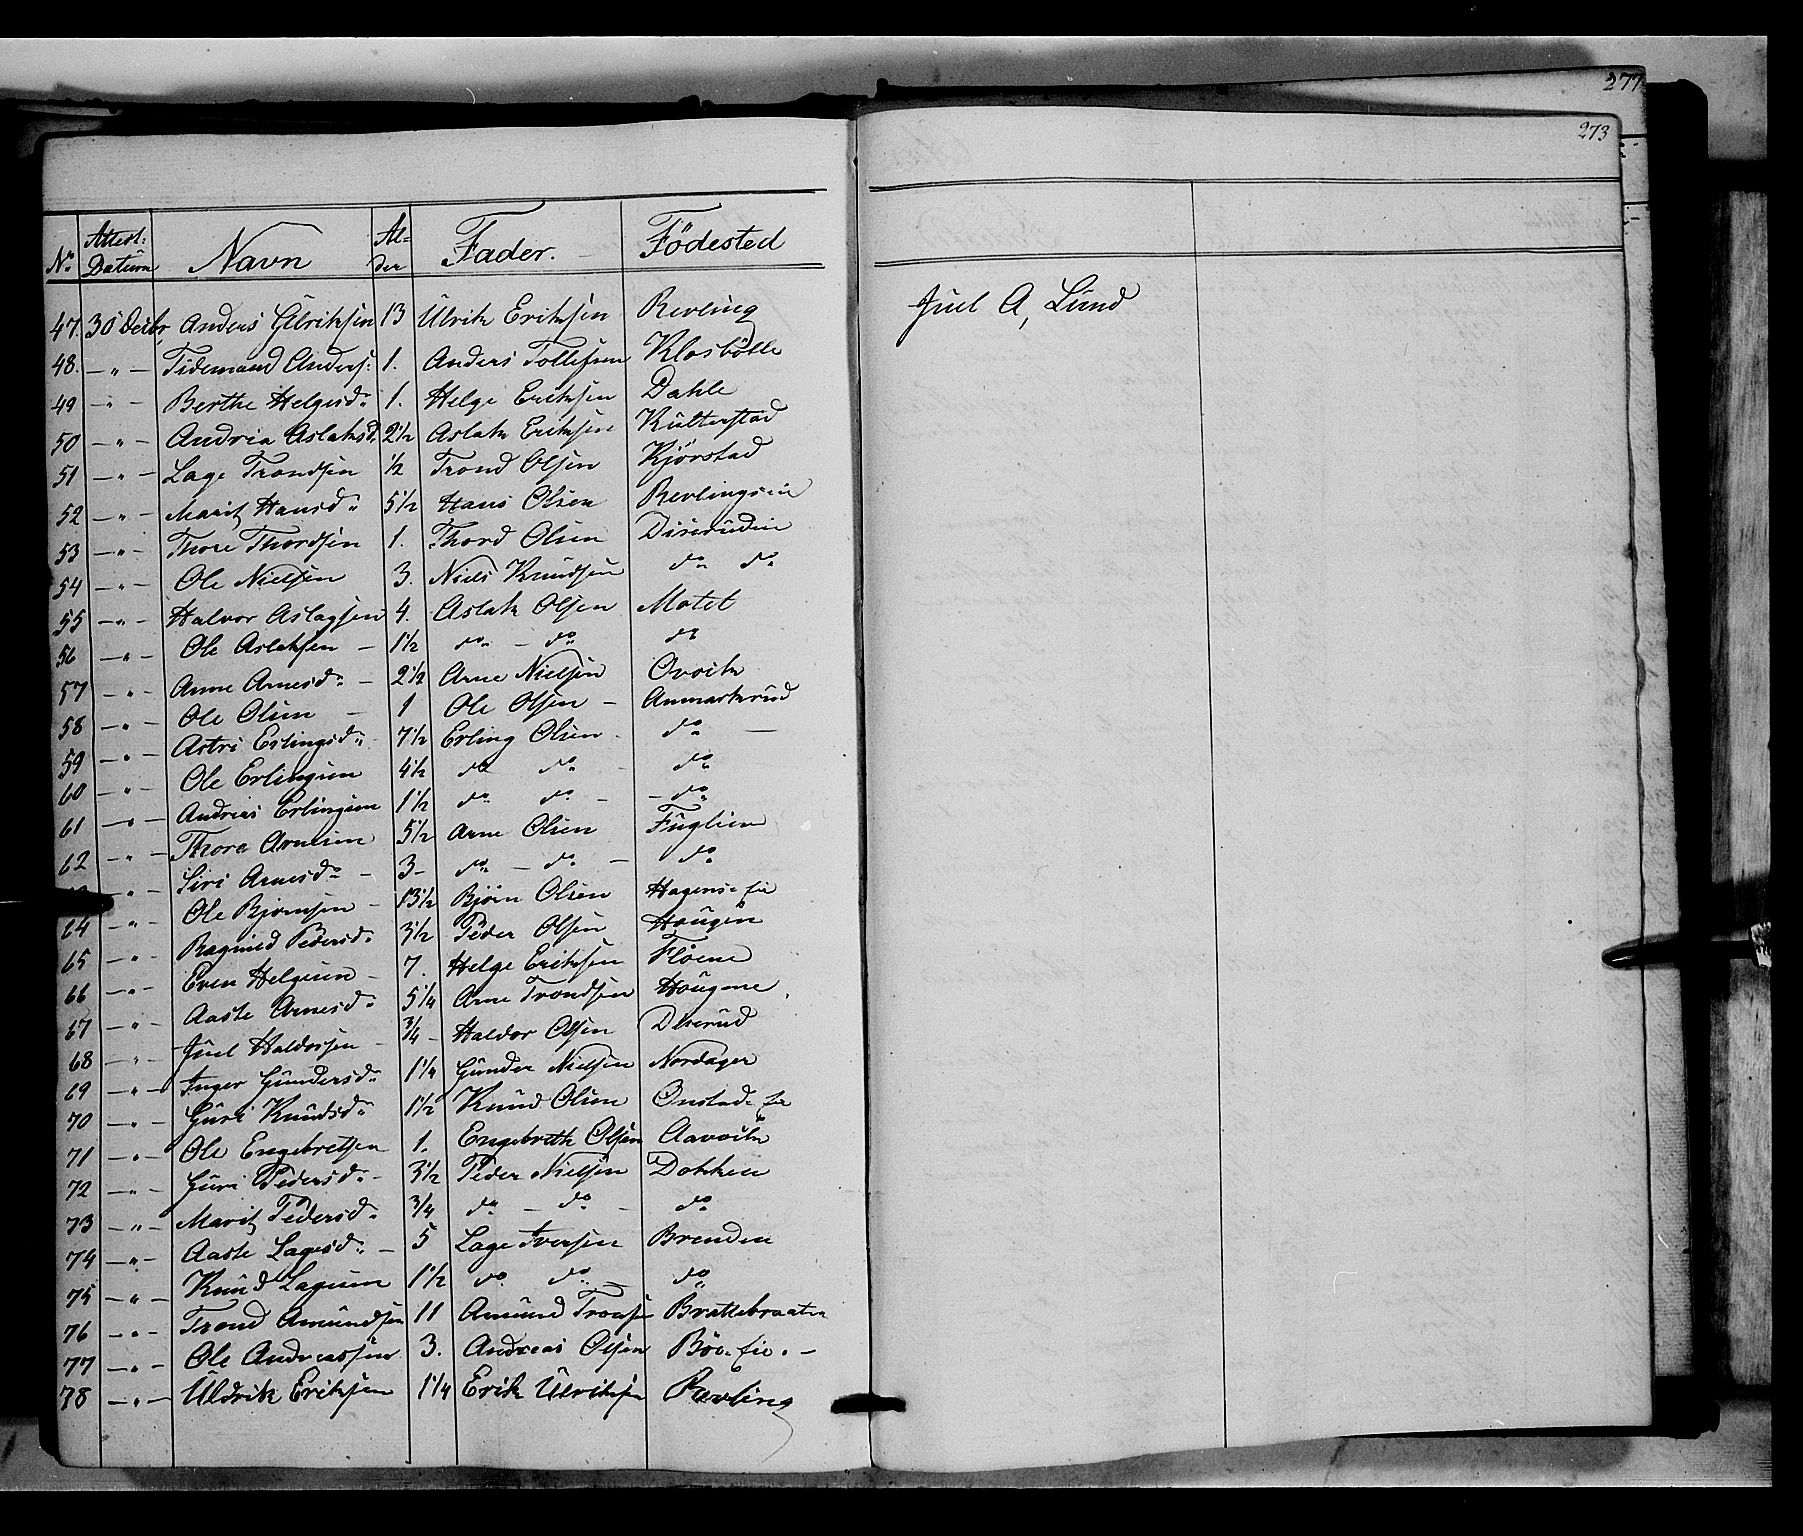 277
273
No Attest: Datum Navn Al- der Fader. Födested
47. 30 Decbr, Anders Ulriksen 13 Ulrik Eriksen Revling
48. — " — Tidemand Anders: 1. Anders Tollefsen Klosbölle
49 — " — Berthe Helgesd: 1. Helge Eriksen Dahle
50 — " — Andria Aslaksd. 2 1/2 Aslak Eriksen Kulterstad
51 — " — Lage Trondsen 1/2 Trond Olsen Kjörstad
52 — " — Marit Hansd: 5 1/2 Hans Olsen Revlingseie
53 — " — Thore Thordsen 1. Thord Olsen Diserudeie
54 — " — Ole Nielsen 3. Niels Knudsen do do
55 — " — Halvor Aslagsen 4. Aslak Olsen Motet
56 — " — Ole Aslaksen — 1 1/2 do — do do
57 — " — Anne Arnesd: — 2 1/2 Arne Nielsen Ovoik
58 — " — Ole Olsen — 1 Ole Olsen — Anmarkrud
59 — " — Astri Erlingsd: 7 1/2 Erling Olsen do —
60 — " — Ole Erlingsen 4 1/2 do do — do
61 — " — Andreas Erlingsen 1 1/2 do do — — do
62 — " — Thore Arnesen 5 1/2 Arne Olsen Fuglien
— " — Siri Arnesd: — 3 — do — do — do
64 — " — Ole Bjørnsen — 13 1/2 Bjørn Olsen Hagens= eie
65 — " — Ragnild Pedersd: 3 1/2 Peder Olsen Hougen
66 — " — Even Helgesen — 7. Helge Eriksen Floene
67 — " — Aaste Arnesd: 5 1/4 Arne Trondsen Hougene
68 — " — Juel Haldorsen — 3/4 — Haldor Olsen Diserud
69 — " — Inger Gundersd: 1 1/4 Gunder Nielsen Nordager
70 — " — Guri Knudsd: 1 1/2 Knud Olsen Onstad= eie
71 — " — Ole Engebretsen 1. Engebreth Olsen Aavoik
72 — " — Guri Pedersd: — 3 1/2 Peder Nielsen Dokken
73 — " — Marit Pedersd: 3/4 do — do — do
74 — " — Aaste Lagesd: — 5 Lage Iversen Brenden
75 — " — Knud Lagesen 1 1/2 do do — do
76 — " — Trond Amundsen 11 Amund Tronsen Brattebraaten
77 — " — Ole Andreassen 3. Andreas Olsen Böe= eie. —
78 — " — Uldrik Eriksen 1 1/4 Erik Ulriksen Revling
Juel A, Lund